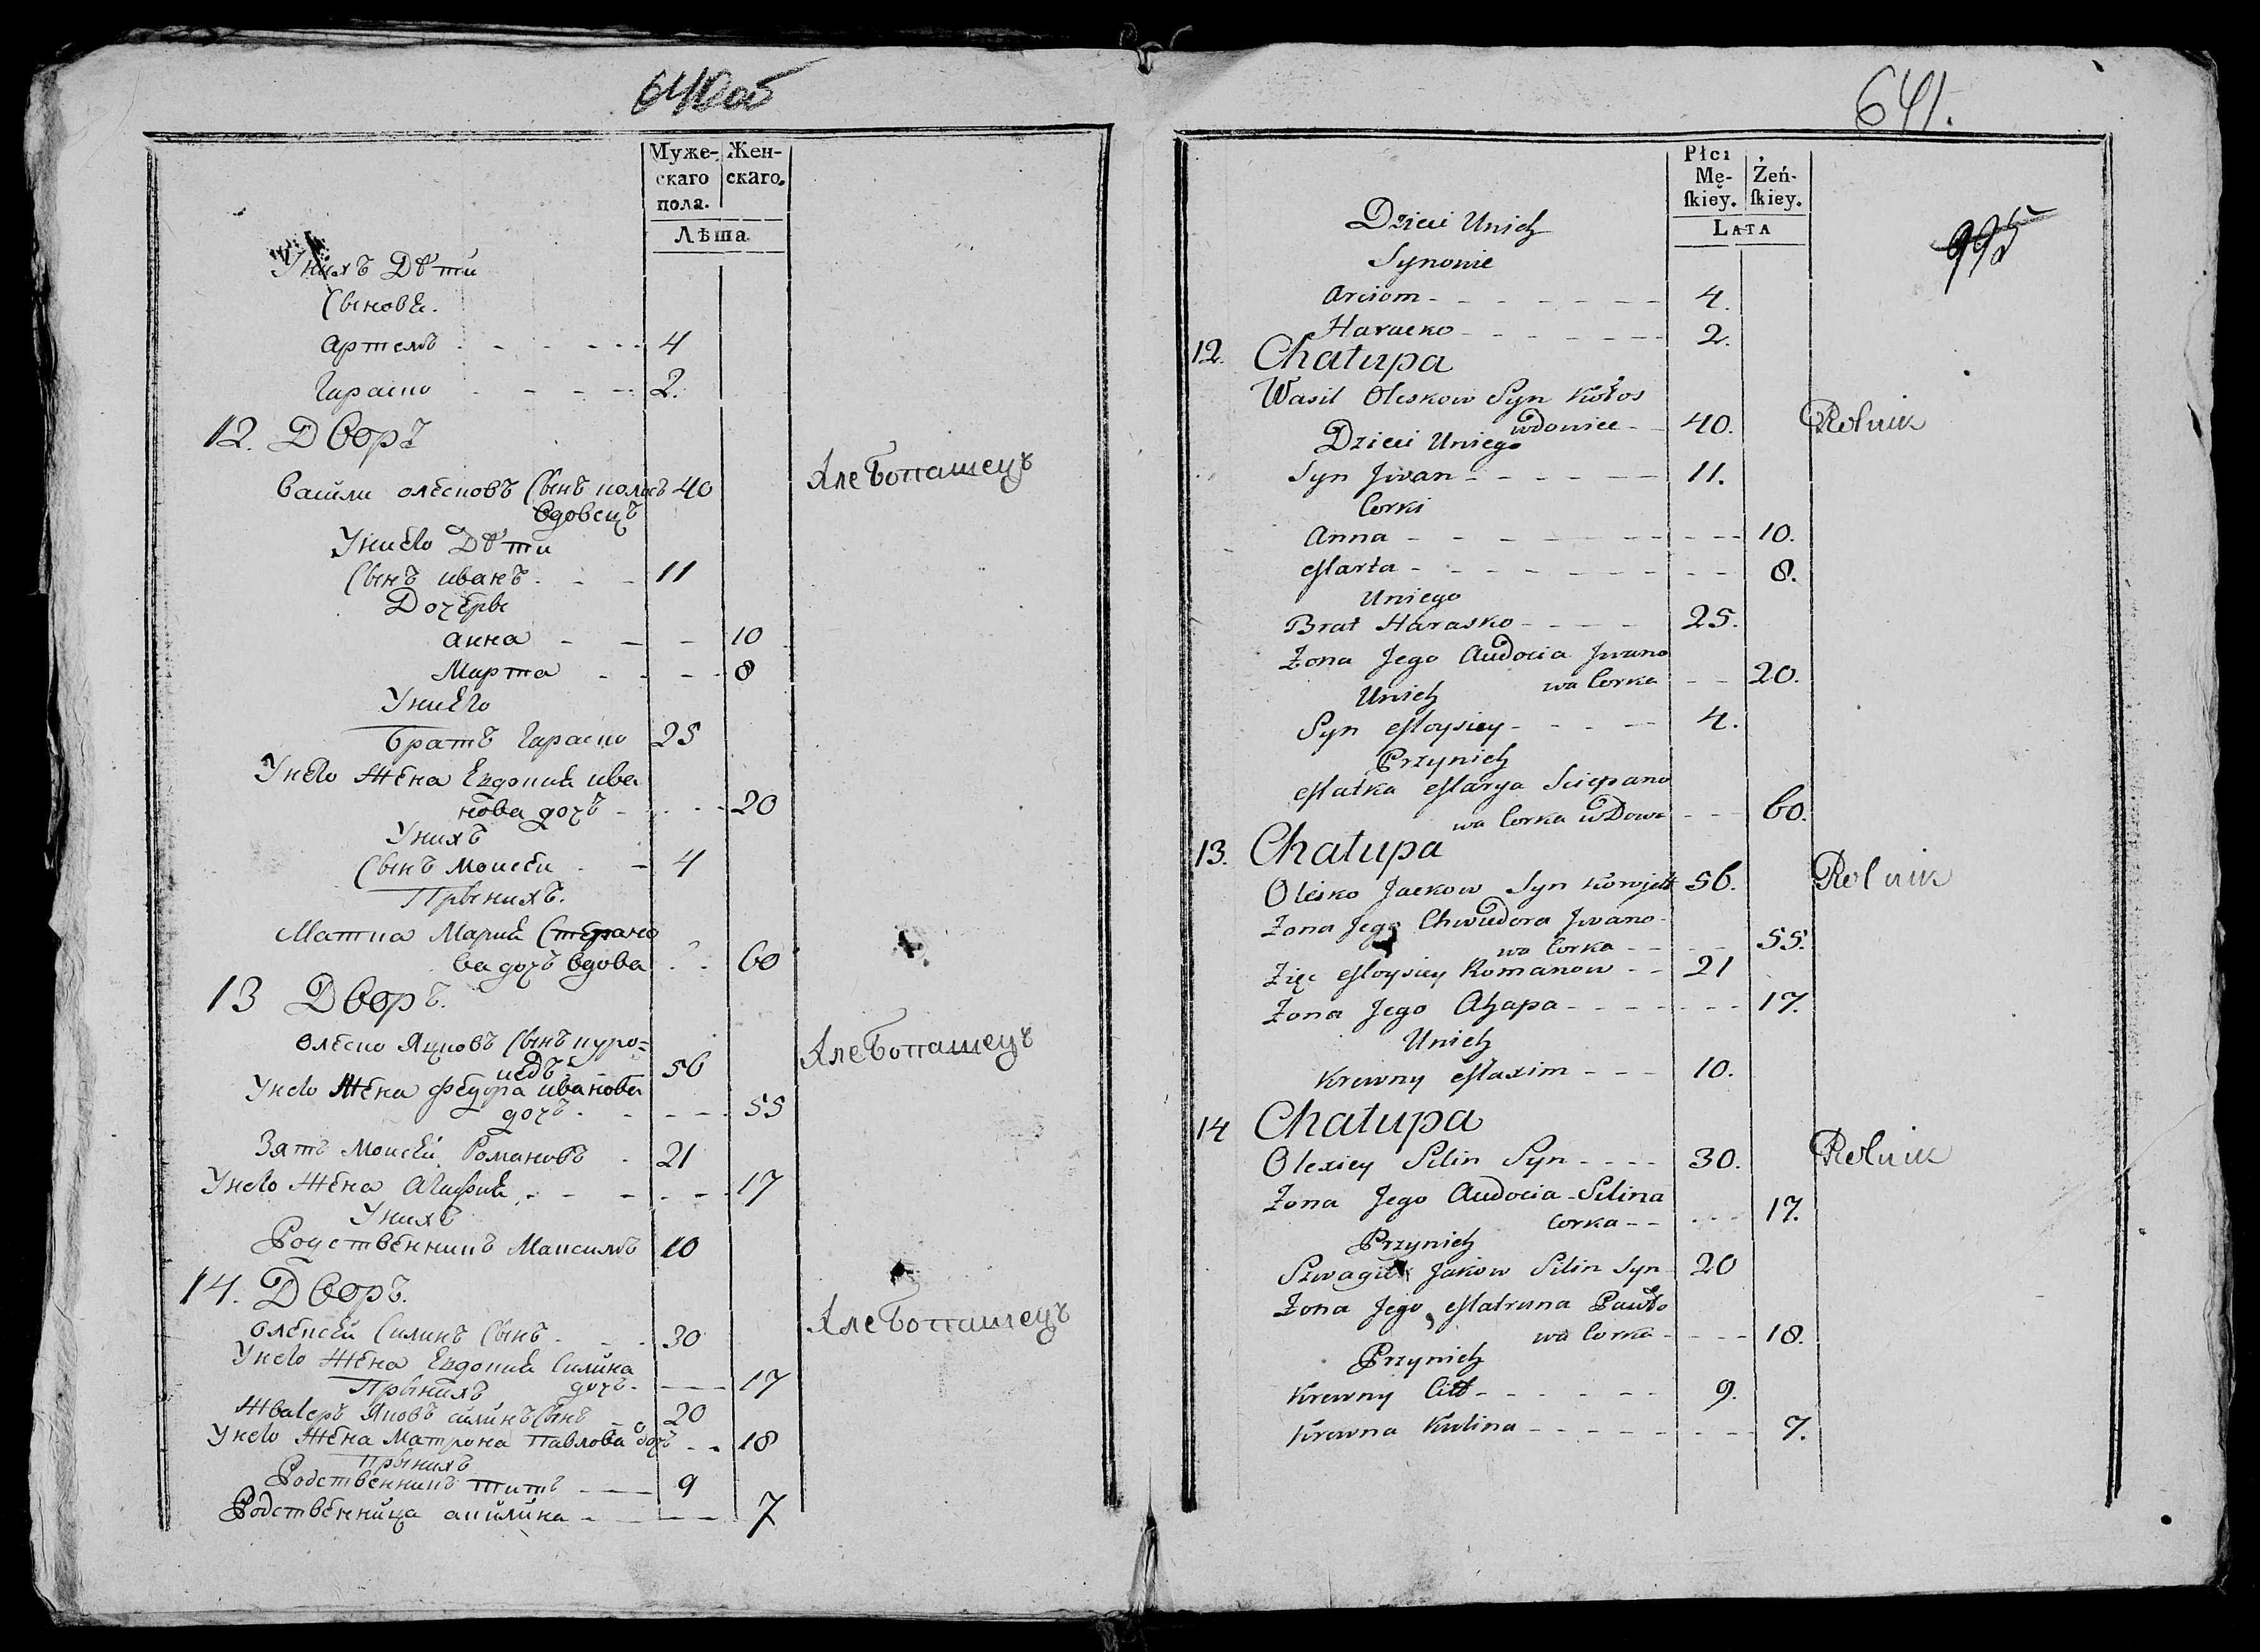 640 об
Муже- Жен-
скаго скаго.
пола.
Лѣта
У нихъ Дѣти
Сыновья.
Артемъ 4
Гараско 2.
12. Дворъ
Васили Олѣсковъ Сынъ колосъ 40 Хлебопашецъ
вдовецъ
У него Дѣти
Сынъ иванъ 11
Дочерье
анна 10
Марта 8
У него
братъ Гараско 25
У него Жена Евдокия ива
нова дочъ 20
У нихъ
Сынъ Моисей 4
При нихъ.
Матка Мария Степано
ва дочъ вдова 60
13 Дворъ.
Олеско Яцковъ Сынъ
56 Хлебопашецъ
У него Жена Федора иванова
дочъ 55
Зять Моисей Романовъ 21
У него Жена Агафия 17
У нихъ
Родственникъ Максимъ 10
14. Дворъ.
Олексей Силинъ Сынъ 30 Хлебопашецъ
У него Жена Евдокия Силина
При нихъ дочъ 17
Яковъ силинъ Сынъ 20
У него Жена Матрона Павлова дочъ 18
При нихъ
Родственникъ титъ 9
Родственница акилина 7
641.
995
Płci
Mę- Żeń-
skiey. skiey.
Lata
Dzieci Unich
Synowie
Arciom 4.
Harasko 2.
12. Chałupa
Wasil Oleskow Syn Kołos
wdowiec 40. Rolnik
Dzieci Uniego
Syn Jwan 11.
Corki
Anna 10.
Marta 8.
Uniego
Brat Harasko 25.
Żona Jego Audocia Jwano
wa Corka 20.
Unich
Syn Moysiey 4.
Przynich
Matka Marya Sciepano
wa Corka wDowa 60.
13. Chałupa
Olesko Jackow Syn 56. Rolnik
Żona Jego Chwiedora Jwano
wa Corka 55.
Zięć Moysiey Romanow 21
Żona Jego Ahapa 17.
Unich
Krewny Maxim 10.
14 Chałupa
Olexiey Silin Syn 30. Rolnik
Żona Jego Audocia Silina
Corka 17.
Przynich
Szwagier Jakow Silin Syn 20
Żona Jego Matruna Pawło
wa Corka 18.
Przynich
Krewny Cit 9.
Krewna Kulina 7.